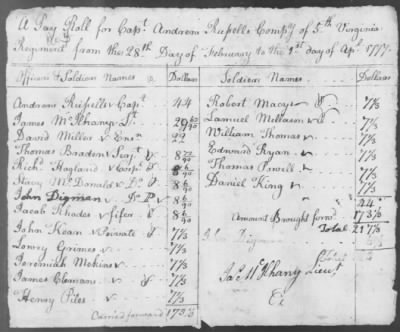 A Pay Roll for Capt. Andrew Rupells Compy of 5th Virginia
Regiment from the 28th Day of February to the 1st day of Apl. 1777
Officers & Soldiers Names Dollars
Andrew Rupells Capt 44
James McKhany Lt
David Miller Ensn
Thomas Braden Serjt
Richd Hayland Corpl
Stacy McDonald Do
John Digman Do
Jacob Rhodes fifer
John Kean Private 7⅓
Lowry Grimes 7⅓
Jeremiah Mekins 7⅓
James Clemons 7⅓
Henry Piles 7⅓
Carried forward
Soldiers Names Dollars
Robert Macy 7⅓
Samuel Mellason 7⅓
William Thomas 7⅓
Edward Ryan 7⅓
Thomas Powell 7⅓
Daniel King 7⅓
44
Amount Brought forwd
Total
Jas McKhany Lieut